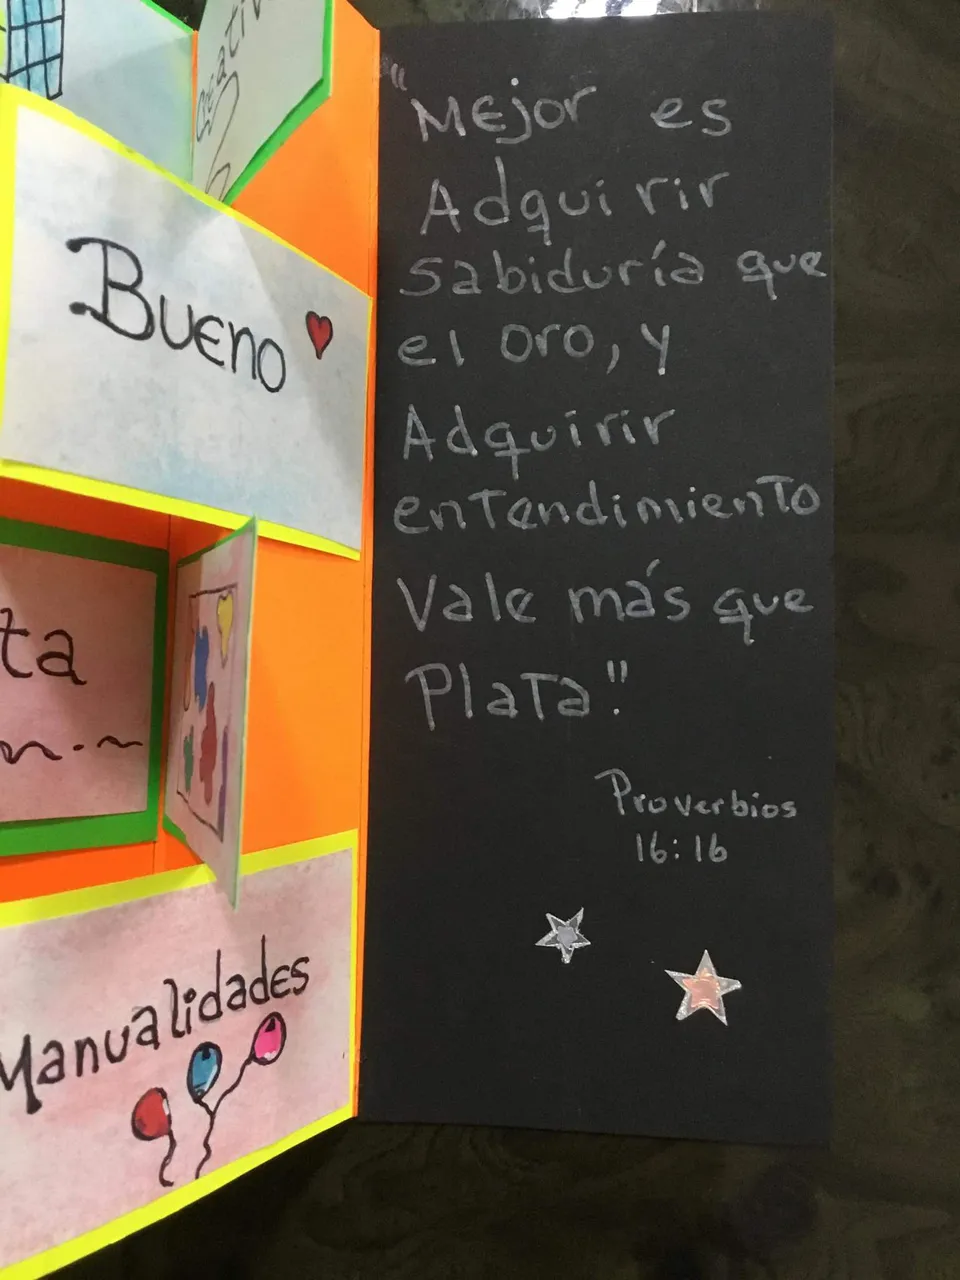 Creativ
Bueno
ta
Manualidades
"Mejor es
Adquirir
sabiduría que
el oro, y
Adquirir
entendimiento
Vale más que
Plata."
Proverbios
16:16